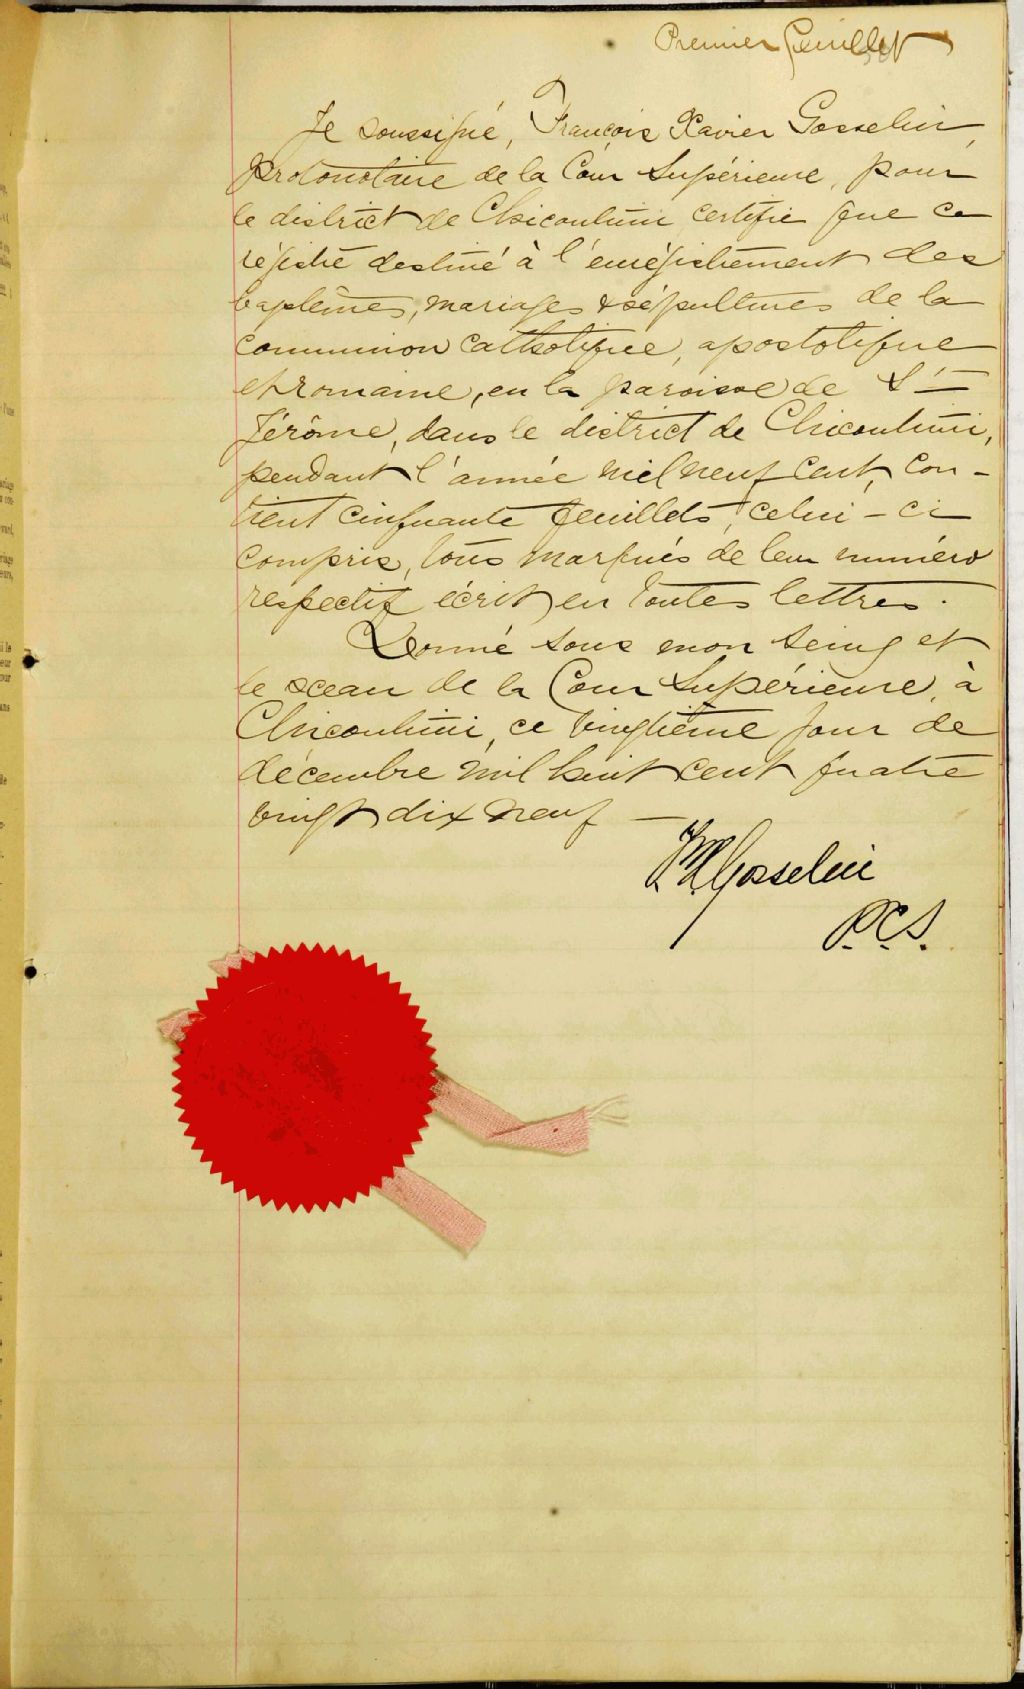 Premier feuillet
Je soussigné, François Xavier Gosselin,
protonotaire de la Cour Supérieure, pour
le district de Chicoutimi certifie que ce
régistre destiné à l'enrégistrement des
baptêmes, mariages & sépultures de la
communion catholique, apostolique
et romaine, en la paroisse de St
Jérôme, dans le district de Chicoutimi,
pendant l'année mil neuf cent, con-
tient cinquante feuillets, celui-ci
compris, tous marqués de leur numéro
respectif écrit en toutes lettres.
Donné sous mon seing et
le sceau de la Cour Supérieure, à
Chicoutimi, ce vingtième jour de
décembre mil huit cent quatre
vingt dix neuf —
F.X. Gosselin
P.C.S.